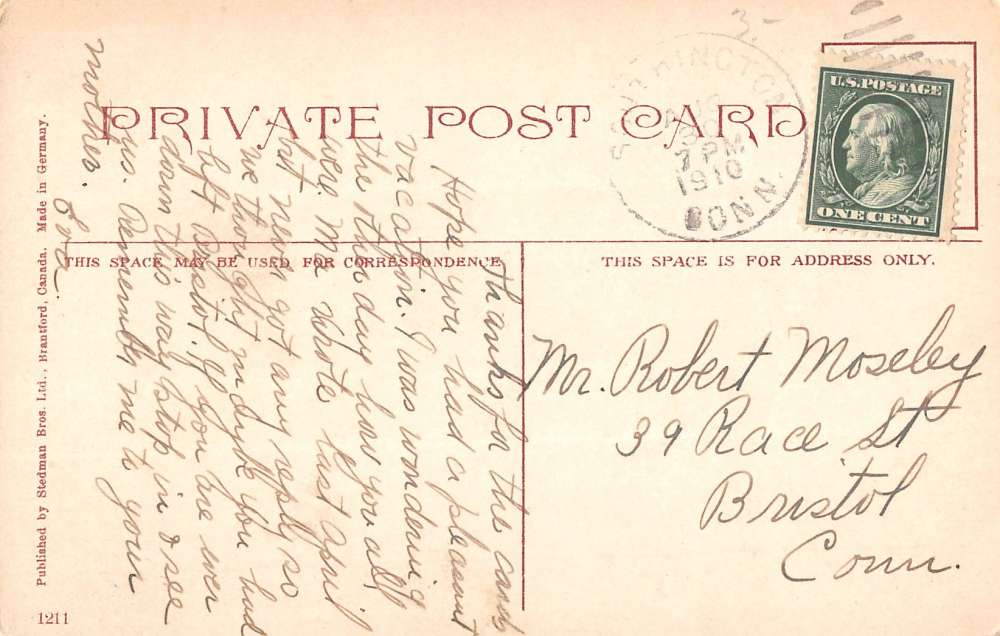 PRIVATE POST CARD
3-
CONN.
7 PM
1910
U.S. POSTAGE
ONE CENT
THIS SPACE MAY BE USED FOR CORRESPONDENCE
THIS SPACE IS FOR ADDRESS ONLY.
Thanks for the card
Hope you had a pleasant
vacation. I was wondering
the other day how you all
were. Ma wrote last April
but never got any reply so
we thought maybe you had
left Bristol. If you are ever
down this way stop in & see
us. Remember me to your
mother. Eva.
Mr. Robert Moseley
39 Race St
Bristol
Conn.
Published by Stedman Bros. Ltd., Brantford, Canada. Made in Germany.
1211